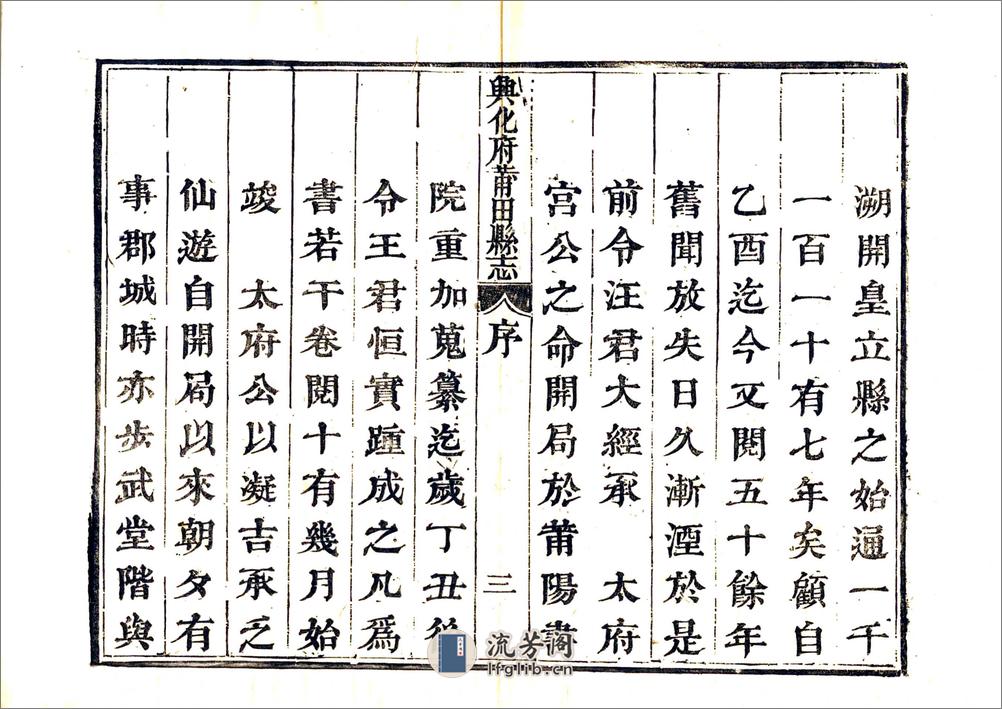 溯開皇立縣之始通一千
一百一十有七年矣顧自
乙酉迄今又閱五十餘年
舊聞放失日久漸湮於是
前令汪君大經承　太府
宫公之命開局於莆陽書
興化府莆田縣志　序　三
院重加蒐纂迄歲丁丑後
令王君恒實踵成之凡爲
書若干卷閱十有幾月始
竣　太府公以凝吉承乏
仙遊自開局以來朝夕有
事郡城時亦步武堂階與
流芳閣
lfglib.cn